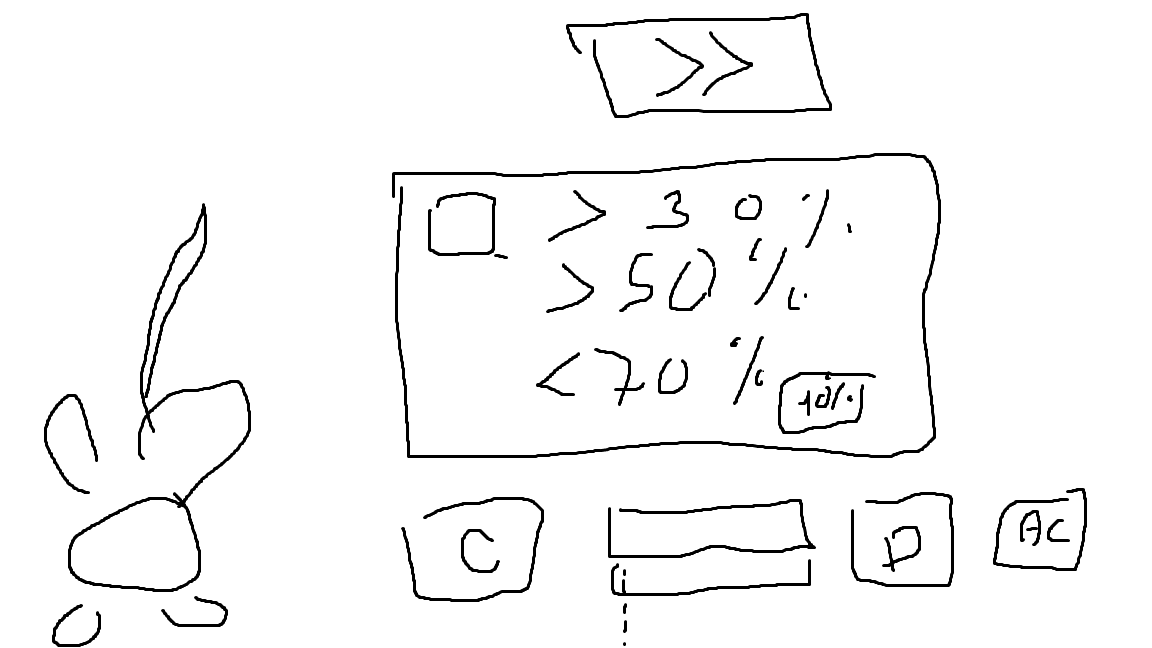 >>
> 30%
> 50%
< 70%
10%
C
D
AC